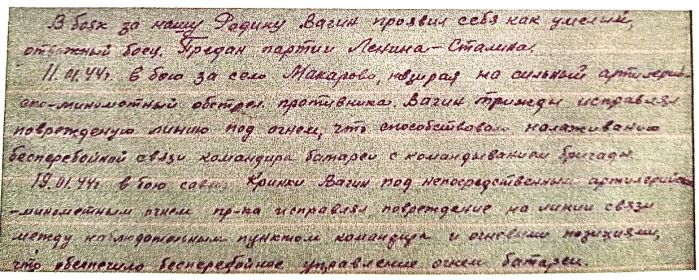 В боях за нашу Родину Вагин проявил себя как умелый,
отважный боец. Предан партии Ленина-Сталина.
11.01.44г. в бою за село Макарово, невзирая на сильный артиллерий
ско-миномётный обстрел противника, Вагин трижды исправлял
повреждённую линию под огнём, что способствовало налаживанию
бесперебойной связи командира батареи с командыванием бригады.
19.01.44г. в бою Кринки Вагин под непосредственным артиллерийско
-миномётным огнём пр-ка исправлял повреждение на линии связи
между наблюдательным пунктом командира и огневыми позициями,
что обеспечило бесперебойное управление огнём батареи.